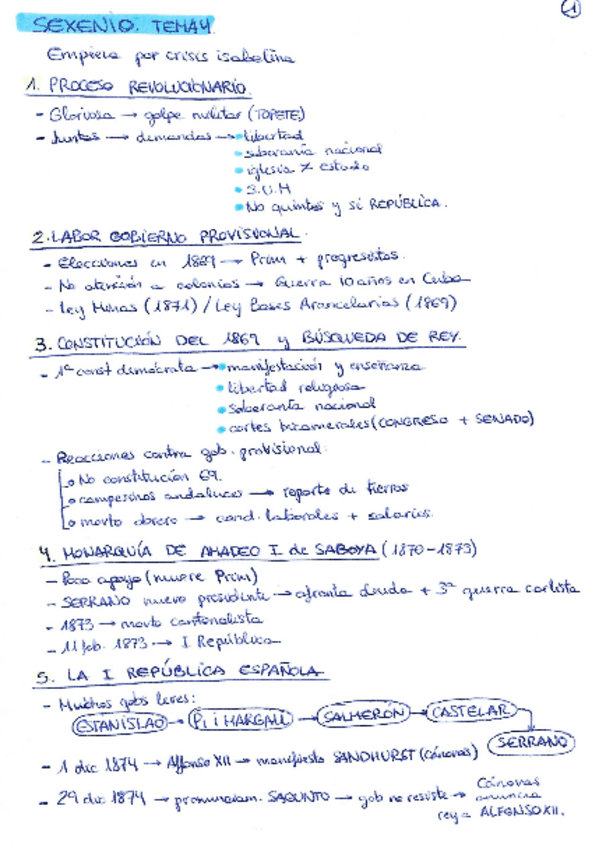 1
SEXENIO. TEMA4
Empieza por crisis isabelina
1. PROCESO REVOLUCIONARIO.
- Gloriosa → golpe militar (TOPETE)
- Juntas → demandas → • libertad
• soberanía nacional
• iglesia ≠ estado
• S.U.M
• No quintas y sí REPÚBLICA.
2. LABOR GOBIERNO PROVISIONAL.
- Elecciones en 1869 → Prim + progresistas.
- No atención a colonias → Guerra 10 años en Cuba
- Ley Minas (1871) / Ley Bases Arancelarias (1869)
3. CONSTITUCIÓN DEL 1869 y BÚSQUEDA DE REY.
- 1ª const demócrata → • manifestación y enseñanza
• libertad religiosa
• soberanía nacional
• cortes bicamerales (CONGRESO + SENADO)
- Reacciones contra gob. provisional:
o No constitución 69.
o campesinos andaluces → reparto de tierras
o movto obrero → cond. laborales + salarios.
4. MONARQUÍA DE AMADEO I de SABOYA (1870-1873)
- Poco apoyo (muere Prim)
- SERRANO nuevo presidente → afronta deuda + 3ª guerra carlista
- 1873 → movto cantonalista
- 11 feb. 1873 → I República
5. LA I REPÚBLICA ESPAÑOLA
- Muchos gobs leves:
ESTANISLAO → PI i MARGALL → SALMERÓN → CASTELAR
SERRANO
- 1 dic 1874 → Alfonso XII → manifiesto SANDHURST (Cánovas)
- 29 dic 1874 → pronunciam. SAGUNTO → gob no resiste → Cánovas
anuncia
rey = ALFONSO XII.